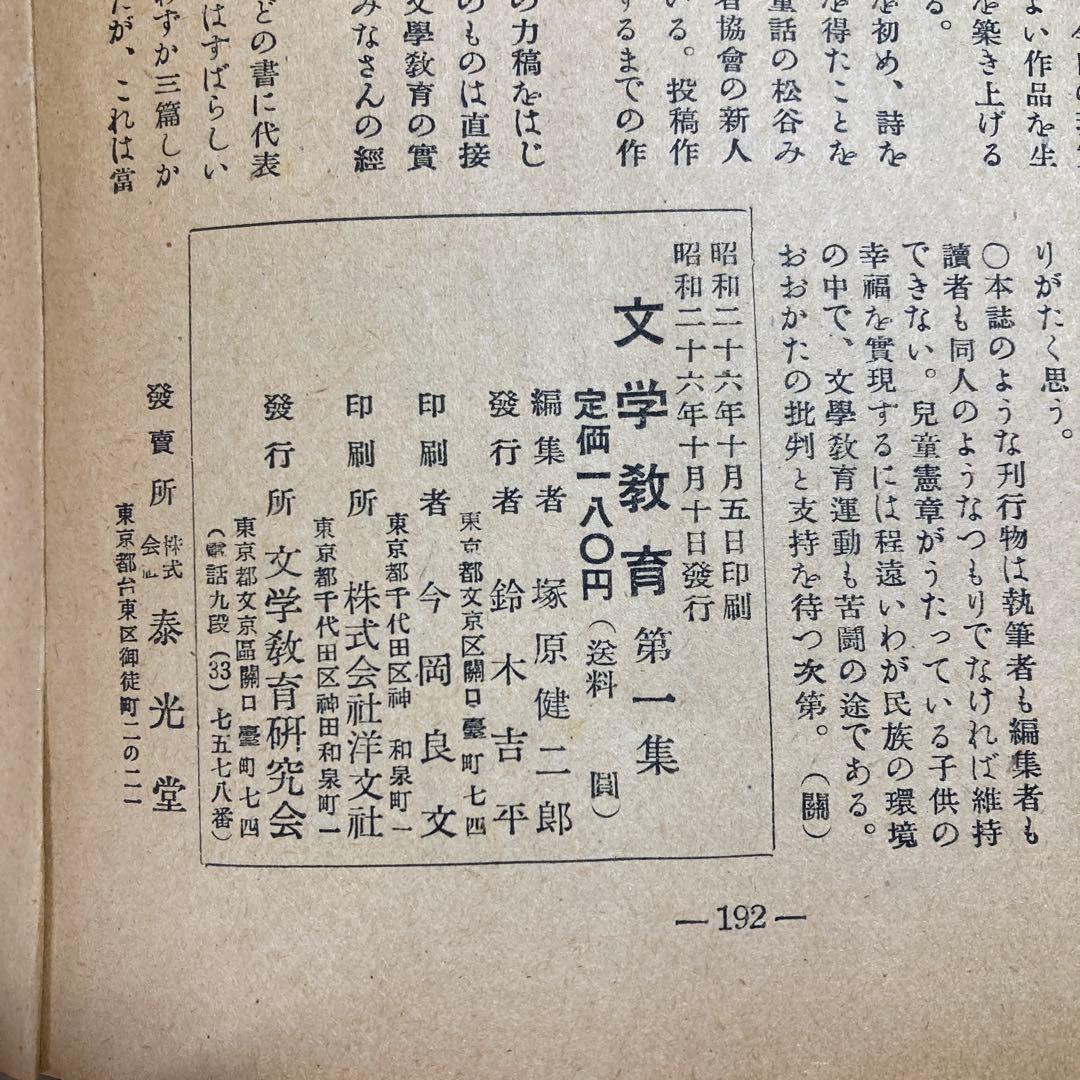 よい作品を生
を築き上げる
る。
を初め、詩を
を得たことを
童話の松谷み
者協會の新人
いる。投稿作
するまでの作
の力稿をはじ
のものは直接
文學敎育の實
みなさんの經
どの書に代表
はすばらしい
わずか三篇しか
だが、これは當
りがたく思う。
〇本誌のような刊行物は執筆者も編集者も
讀者も同人のようなつもりでなければ維持
できない。兒童憲章がうたっている子供の
幸福を實現するには程遠いわが民族の環境
の中で、文學敎育運動も苦鬪の途である。
おおかたの批判と支持を待つ次第。（關）
昭和二十六年十月五日印刷
昭和二十六年十月十日發行
文学敎育 第一集
定価一八〇円（送料　圓）
編集者 塚原健二郎
發行者 鈴木吉平
東京都文京区關口臺町七四
印刷者 今岡良文
東京都千代田区神　和泉町一
印刷所 株式会社洋文社
東京都千代田区神田和泉町一
發行所 文学敎育硏究会
東京都文京區關口臺町七四
（電話九段（33）七五七八番）
發賣所 株式会社 泰光堂
東京都台東区御徒町二の二一
— 192 —